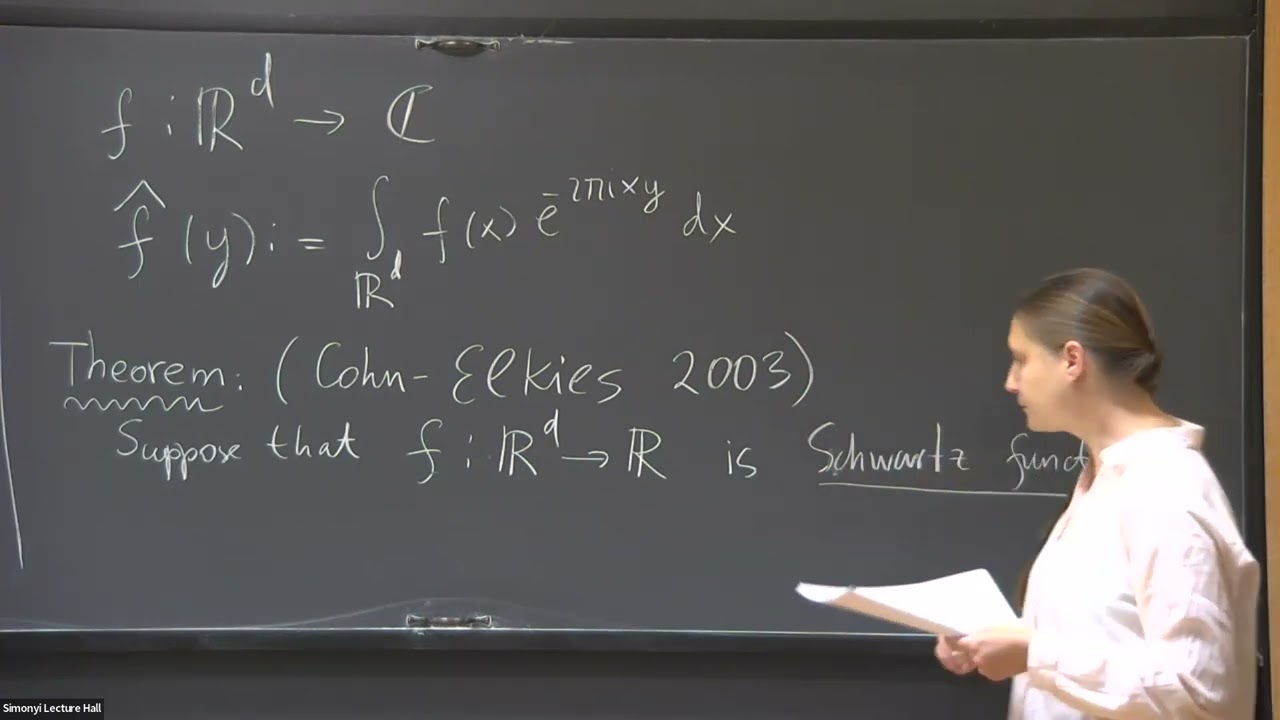 f : ℝ^d → ℂ
f̂(y) := ∫_{ℝ^d} f(x) e^{-2πixy} dx
Theorem: (Cohn-Elkies 2003)
Suppose that f : ℝ^d → ℝ is Schwartz funct
Simonyi Lecture Hall